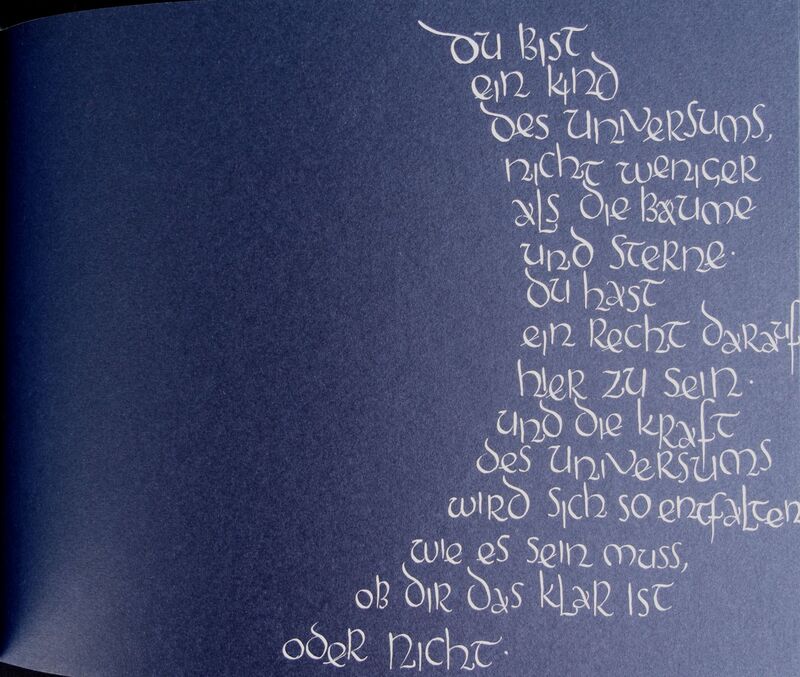 Du bist
ein Kind
des Universums,
nicht weniger
als die Bäume
und Sterne.
Du hast
ein Recht darauf
hier zu sein.
und die Kraft
des Universums
wird sich so entfalten
wie es sein muss,
ob dir das klar ist
oder nicht.